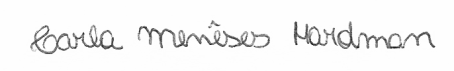 Carla Menêses Hardman